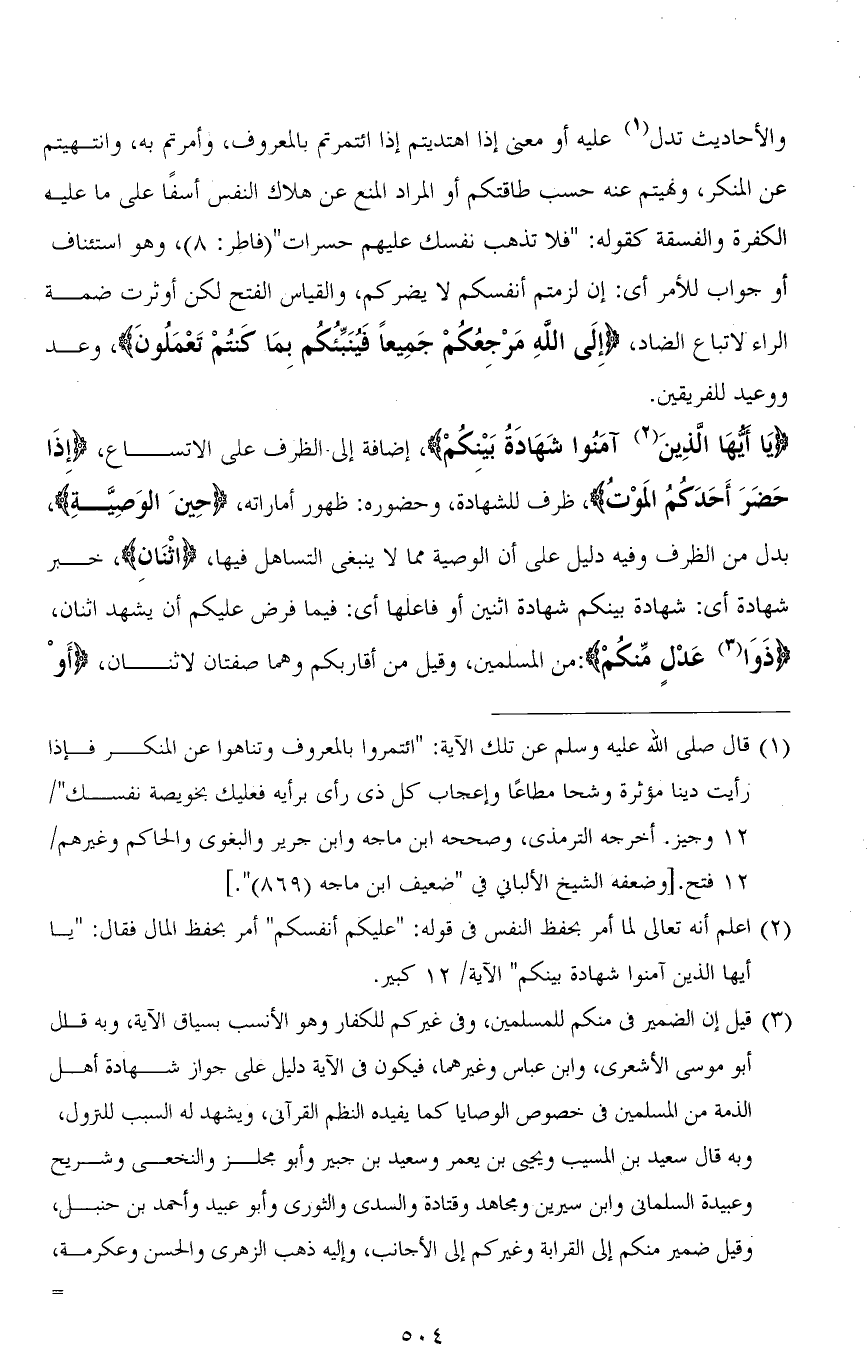 والأحاديث تدل(١) عليه أو معنى إذا اهتديتم إذا ائتمرتم بالمعروف، وأمرتم به، وانتهيتم
عن المنكر، ونهيتم عنه حسب طاقتكم أو المراد المنع عن هلاك النفس أسفًا على ما عليه
الكفرة والفسقة كقوله: "فلا تذهب نفسك عليهم حسرات"(فاطر: ٨)، وهو استئناف
أو جواب للأمر أى: إن لزمتم أنفسكم لا يضركم، والقياس الفتح لكن أوثرت ضمة
الراء لاتباع الضاد، ﴿إِلَى اللَّهِ مَرْجِعُكُمْ جَمِيعاً فَيُنَبِّئُكُم بِمَا كُنتُمْ تَعْمَلُونَ﴾، وعد
ووعيد للفريقين.
﴿يَا أَيُّهَا الَّذِينَ(٢) آمَنُوا شَهَادَةُ بَيْنِكُمْ﴾، إضافة إلى الظرف على الاتساع، ﴿إِذَا
حَضَرَ أَحَدَكُمُ المَوْتُ﴾، ظرف للشهادة، وحضوره: ظهور أماراته، ﴿حِينَ الوَصِيَّةِ﴾،
بدل من الظرف وفيه دليل على أن الوصية مما لا ينبغى التساهل فيها، ﴿اثْنَانِ﴾، خبر
شهادة أى: شهادة بينكم شهادة اثنين أو فاعلها أى: فيما فرض عليكم أن يشهد اثنان،
﴿ذَوَا(٣) عَدْلٍ مِّنكُمْ﴾:من المسلمين، وقيل من أقاربكم وهما صفتان لاثنان، ﴿أَوْ
(١) قال صلى الله عليه وسلم عن تلك الآية: "ائتمروا بالمعروف وتناهوا عن المنكر فإذا
رأيت دينا مؤثرة وشحا مطاعًا وإعجاب كل ذى رأى برأيه فعليك بخويصة نفسك"/
١٢ وجيز. أخرجه الترمذى، وصححه ابن ماجه وابن جرير والبغوى والحاكم وغيرهم/
١٢ فتح.[وضعفه الشيخ الألباني في "ضعيف ابن ماجه (٨٦٩)".]
(٢) اعلم أنه تعالى لما أمر بحفظ النفس فى قوله: "عليكم أنفسكم" أمر بحفظ المال فقال: "يا
أيها الذين آمنوا شهادة بينكم" الآية/ ١٢ كبير.
(٣) قيل إن الضمير فى منكم للمسلمين، وفى غيركم للكفار وهو الأنسب بسياق الآية، وبه قال
أبو موسى الأشعرى، وابن عباس وغيرهما، فيكون فى الآية دليل على جواز شهادة أهل
الذمة من المسلمين فى خصوص الوصايا كما يفيده النظم القرآنى، ويشهد له السبب للنزول،
وبه قال سعيد بن المسيب ويحيى بن يعمر وسعيد بن جبير وأبو مجلز والنخعى وشريح
وعبيدة السلمانى وابن سيرين ومجاهد وقتادة والسدى والثورى وأبو عبيد وأحمد بن حنبل،
وقيل ضمير منكم إلى القرابة وغيركم إلى الأجانب، وإليه ذهب الزهرى والحسن وعكرمة،
=
٥٠٤